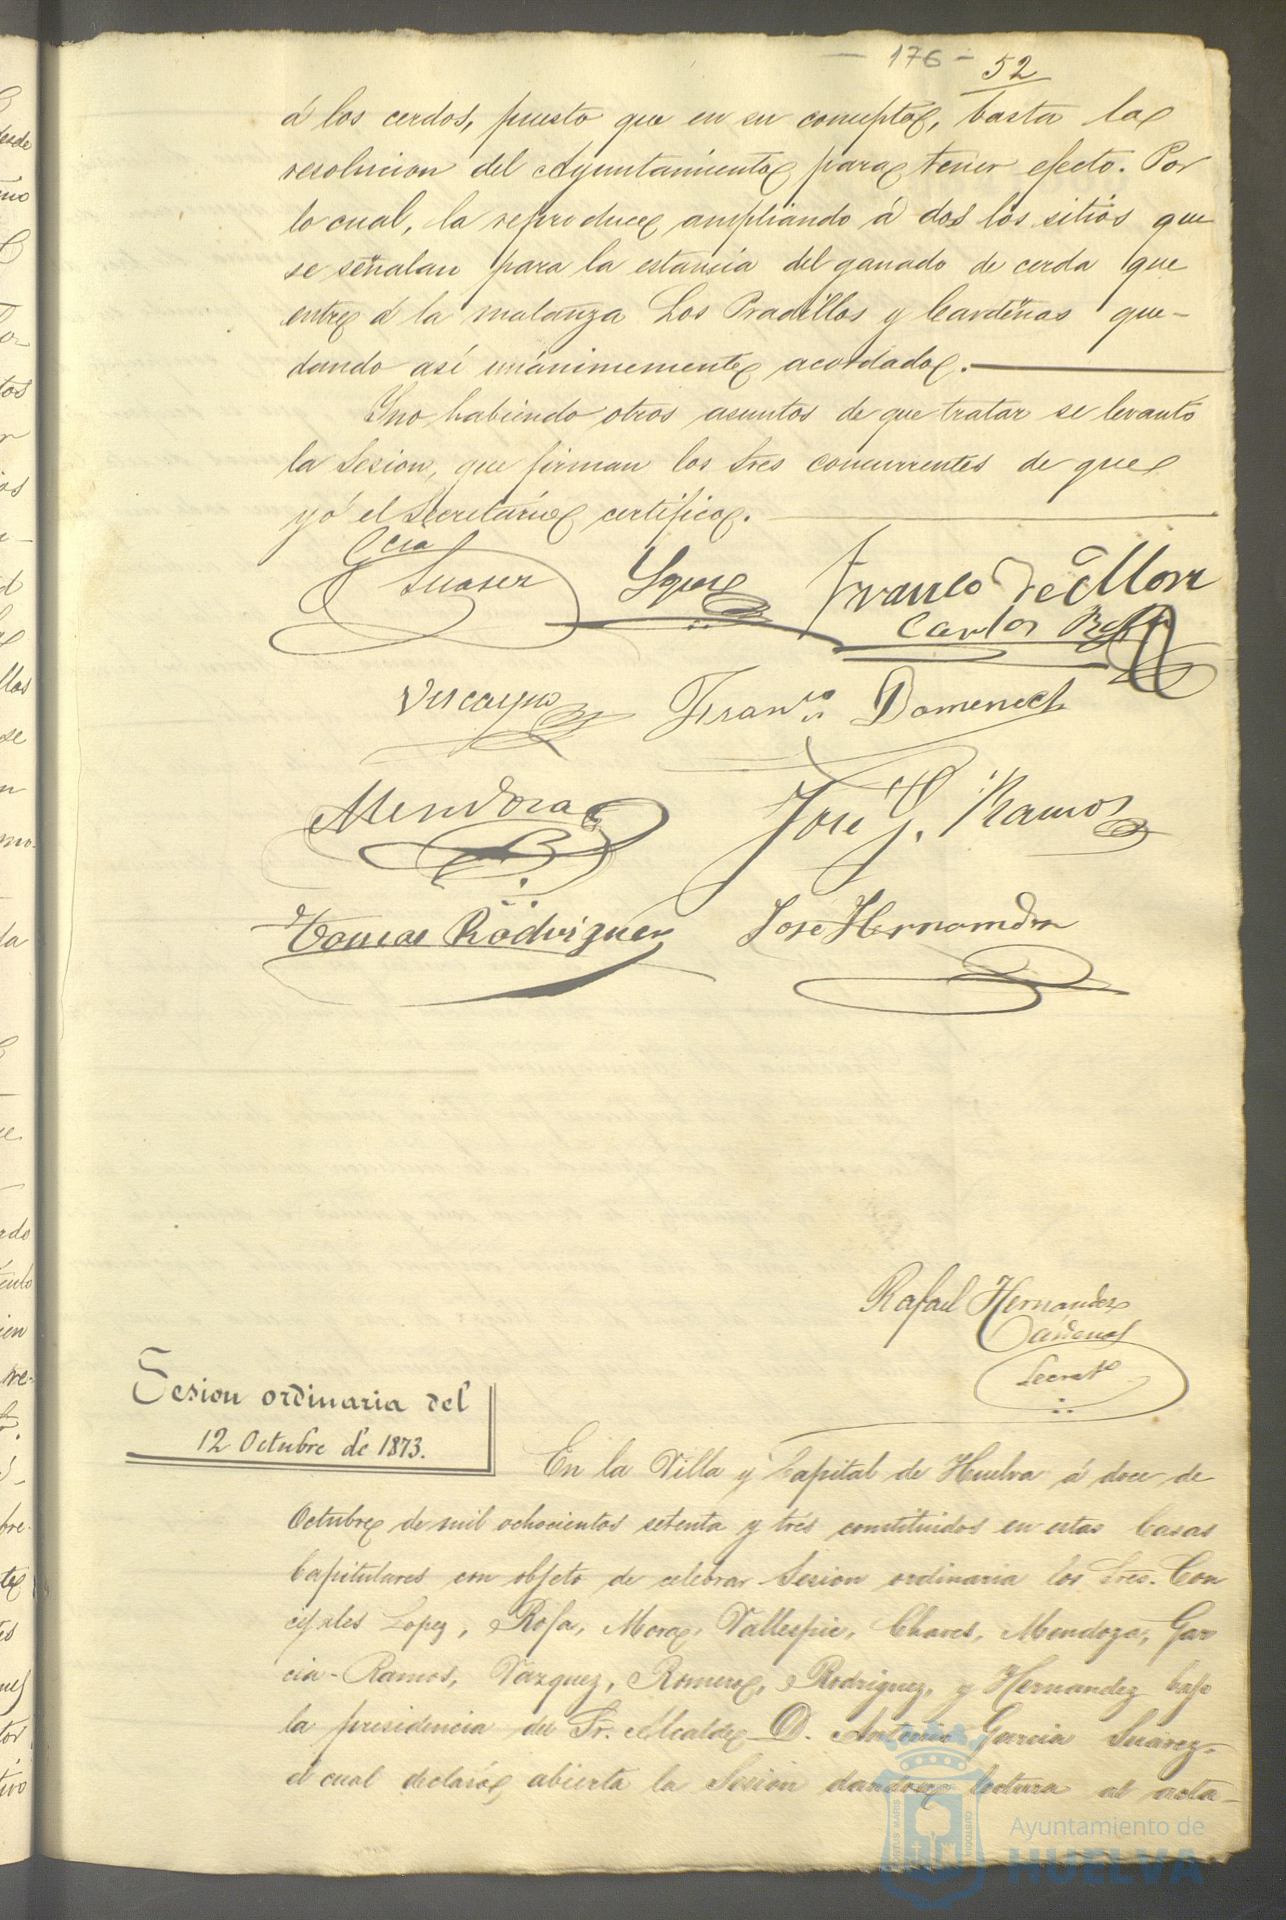 - 176 -
52
á los cerdos, puesto que en su concepto, basta la
resolucion del Ayuntamiento para tener efecto. Por
lo cual, la reproduce ampliando á dos los sitios que
se señalan para la estancia del ganado de cerda que
entre á la matanza Los Pradillos y Cardeñas que-
dando asi unánimemente acordado.
Y no habiendo otros asuntos de que tratar se levantó
la Sesion, que firman los Sres concurrentes de que
yó el Secretario certifico.
Gcia
Suarez
Franco de Mora
Carlos Rofa
Vizcayno
Franco Domenech
Mendoza
José G. Ramos
Tomas Rodriguez
José Hernandez
Rafael Hernandez
Cárdenas
Secreto
Sesion ordinaria del
12 Octubre de 1873.
En la Villa y Capital de Huelva á doce de
Octubre de mil ochocientos setenta y tres constituidos en estas Casas
Capitulares con objeto de celebrar Sesion ordinaria los Sres. Con
cejales Lopez, Rofa, Mora, Vallespin, Chaves, Mendoza, Gar
cia-Ramos, Vazquez, Romero, Rodriguez, y Hernandez bajo
la presidencia del Sr. Alcalde D. Antonio Garcia Suarez.
el cual declaró abierta la Sesion dandose lectura al acta-
Ayuntamiento de
HUELVA